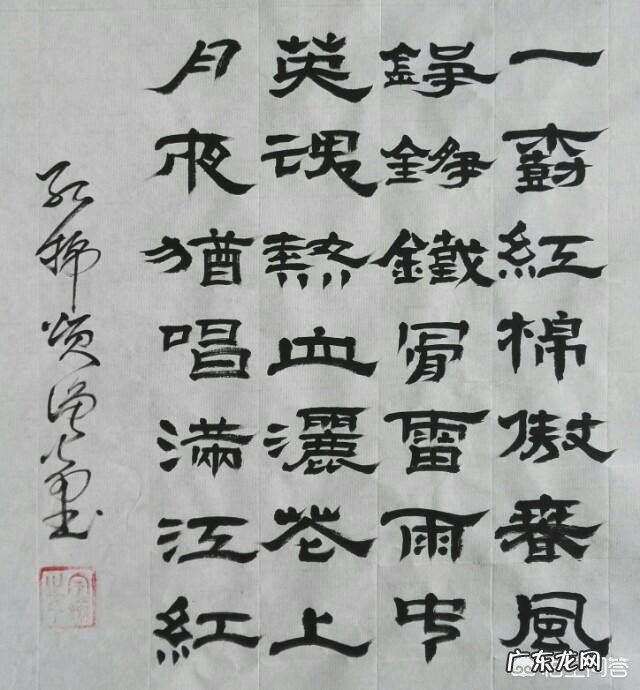 一樹紅棉傲春風
錚錚鐵骨雷雨中
英魂熱血灑花上
月夜猶唱滿江紅
紅棉頌
广东龙网
问答